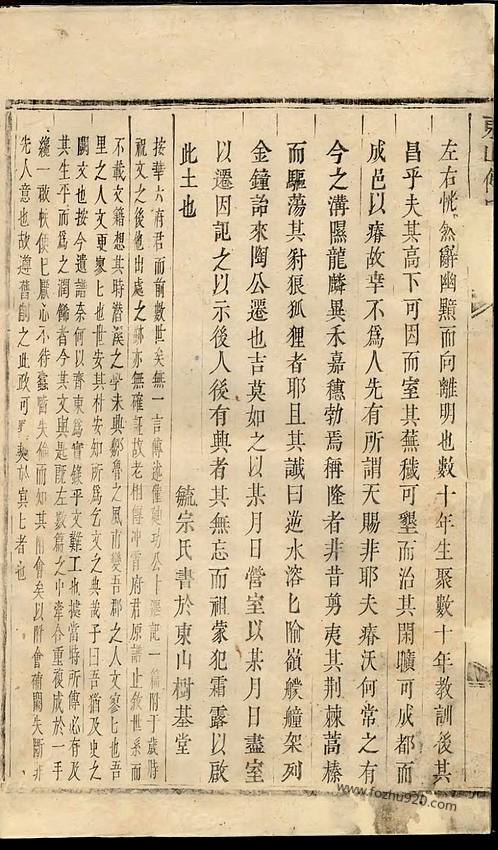 左右恍然辭幽顯而向離明也數十年生聚數十年教訓後其
昌乎夫其高下可因而室其蕪穢可墾而治其閑曠可成都而
成邑以瘠故幸不為人先有所謂天賜非耶夫瘠沃何常之有
今之溝隰龍麟異禾嘉穗勃焉稱隆者非昔剪夷其荆棘蒿榛
而驅蕩其豺狼狐狸者耶且其讖曰迤水溶匕隃嶺艘艟架列
金鐘詒來陶公遷也吉莫如之以某月日營室以某月日盡室
以遷因記之以示後人後有興者其無忘而祖蒙犯霜露以啟
此土也
毓宗氏書於東山樹基堂
按華六府君而前數世矣無一言傳述僅 功公卜遷記一篇附于歲時
祝文之後他出處之跡亦無確証故老相傳冲霄府君原譜止敘世系而
不載文籍想其時潜溪之學未興鄒魯之風甫變吾郡之人文寥匕也吾
里之人文更寥匕也世安其朴安知所為乞文之典哉予曰吾猶及史之
闕文也按今遺譜奈何以齊東為實錄乎文難工也據當時所傳必有及
其生平而為之潤餙者今其文與是既左數篇之中牽合重複成於一手
纔一啟帙使匕厭心不待 失倫而如其附會矣以附會補闕失斷非
先人意也故遵舊 之此政可 寘匕者也
www.fozhu920.com